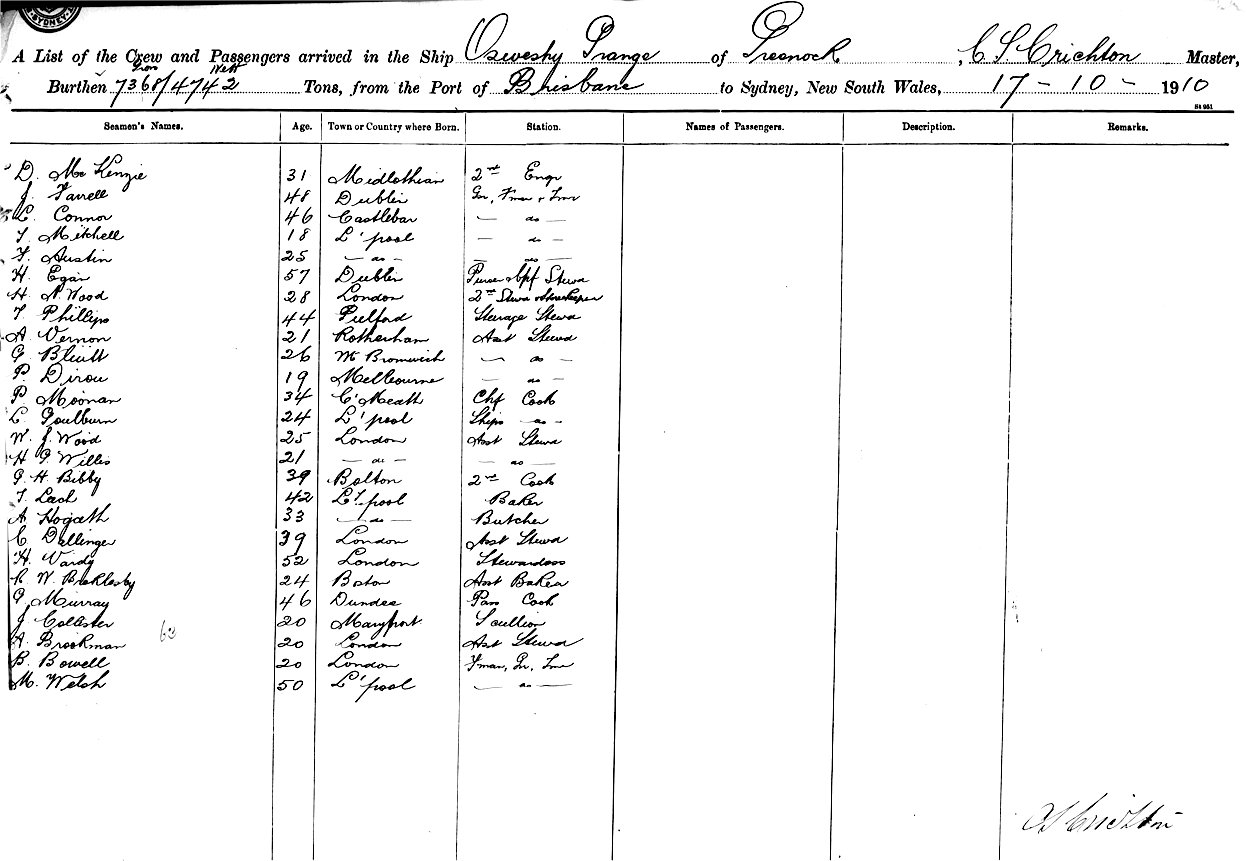 SYDNEY
A List of the Crew and Passengers arrived in the Ship Oswestry Grange of Greenock, C S Crichton Master,
Gross Nett
Burthen 7368/4742 Tons, from the Port of Brisbane to Sydney, New South Wales, 17 - 10 - 1910
St 951
Seamen's Names. Age. Town or Country where Born. Station. Names of Passengers. Description. Remarks.
D. McKenzie 31 Midlothian 2nd Engr
J. Farrell 48 Dublin Gr, Fman & Tmr
L. Connor 46 Castlebar — do —
T. Mitchell 18 L'pool — do —
F. Austin 25 — do — — do —
H. Egan 57 Dublin Purser & Chf Stewd
H. N. Wood 28 London 2nd Stewd Storekeeper
T. Phillips 44 Pulford Steerage Stewd
A. Vernon 21 Rotherham Asst Stewd
G. Blewitt 26 W Bromwich — do —
P. Dirou 19 Melbourne — do —
P. Moonan 34 C'Meath Chf Cook
L. Goulburn 24 L'pool Ships — do —
W. J. Wood 25 London Asst Stewd
H. G. Willis 21 — do — — do —
G. H. Bibby 39 Bolton 2nd Cook
T. Lach 42 L'pool Baker
A. Hogarth 33 — do — Butcher
C. Dellinger 39 London Asst Stewd
H. Vardy 52 London Stewardess
R. W. Brocklesby 24 Boston Asst Baker
G. Murray 46 Dundee Pass Cook
J. Collister 20 Maryport Scullion
A. Brookman 20 London Asst Stewd
B. Bowell 20 London Fman, Gr, Tmr
M. Welsh 50 L'pool — do —
C S Crichton